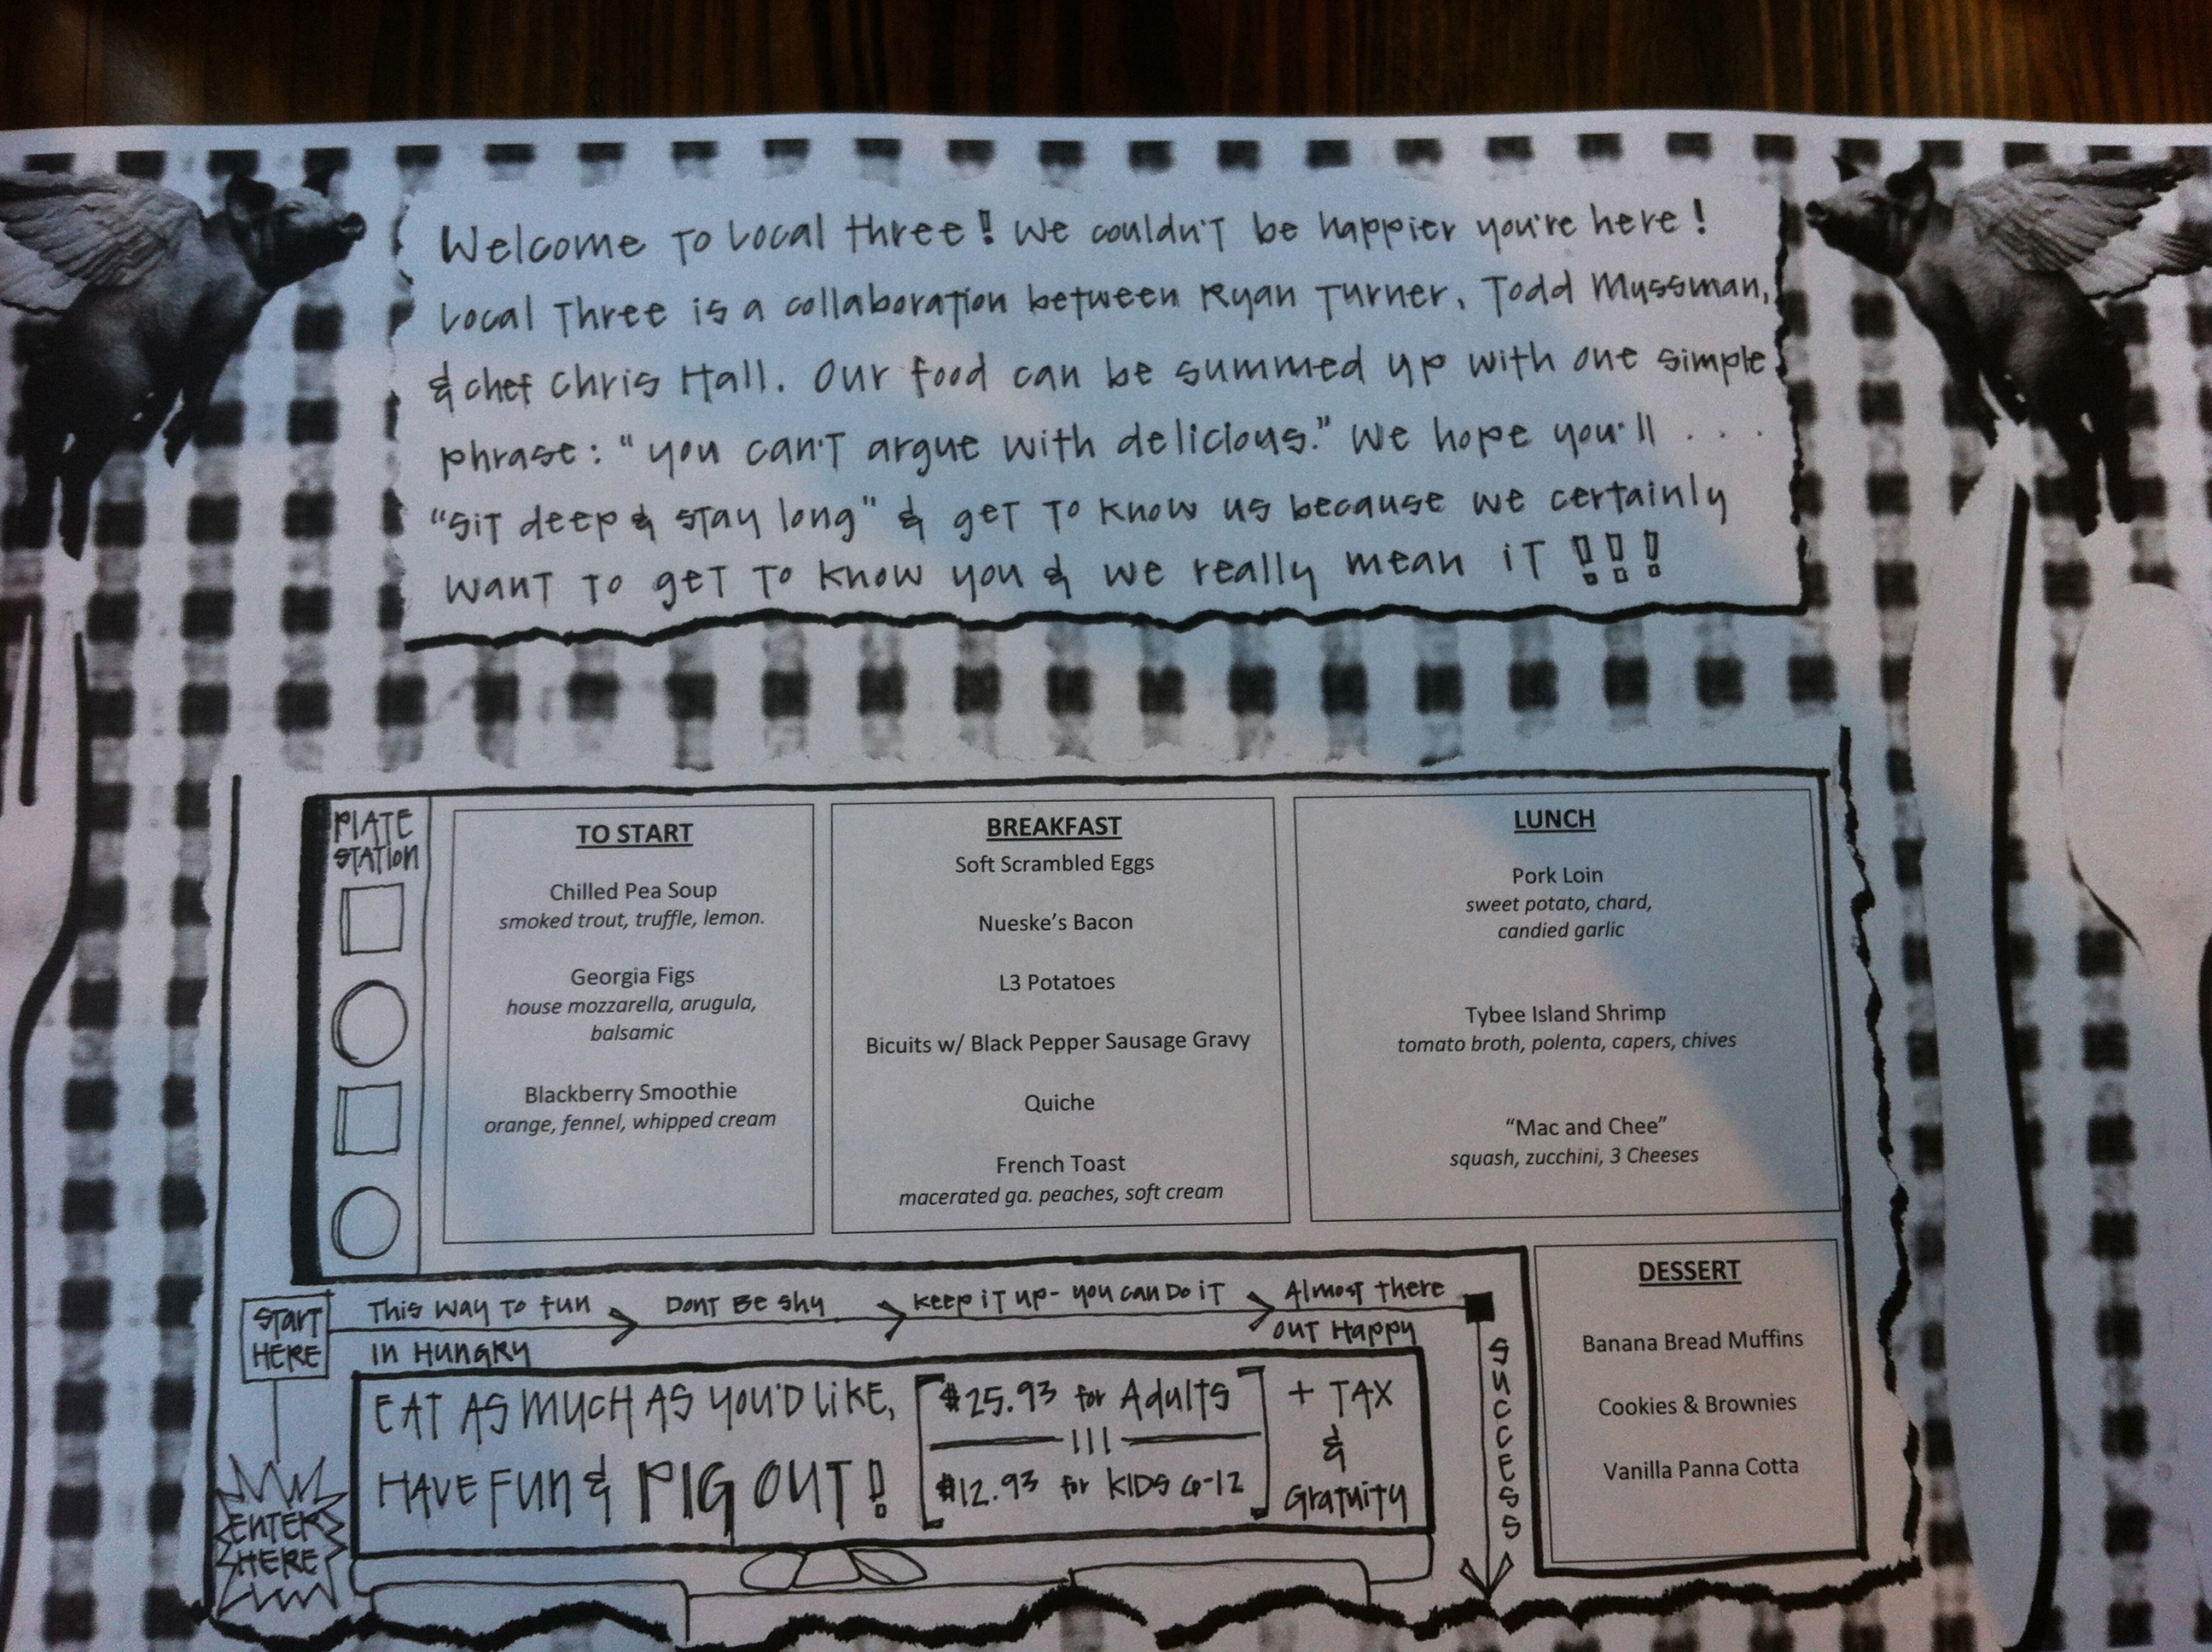 Welcome to Local Three! We couldn't be happier you're here!
Local Three is a collaboration between Ryan Turner, Todd Mussman,
& chef Chris Hall. Our food can be summed up with one simple
phrase: "you can't argue with delicious." We hope you'll ...
"sit deep & stay long" & get to know us because we certainly
want to get to know you & we really mean it!!!
PLATE
STATION
TO START
Chilled Pea Soup
smoked trout, truffle, lemon.
Georgia Figs
house mozzarella, arugula,
balsamic
Blackberry Smoothie
orange, fennel, whipped cream
BREAKFAST
Soft Scrambled Eggs
Nueske's Bacon
L3 Potatoes
Bicuits w/ Black Pepper Sausage Gravy
Quiche
French Toast
macerated ga. peaches, soft cream
LUNCH
Pork Loin
sweet potato, chard,
candied garlic
Tybee Island Shrimp
tomato broth, polenta, capers, chives
"Mac and Chee"
squash, zucchini, 3 Cheeses
DESSERT
Banana Bread Muffins
Cookies & Brownies
Vanilla Panna Cotta
START
HERE
This way to fun
Dont Be Shy
Keep it up- you can Do it
Almost there
IN HUNGRY
OUT Happy
SUCCESS
EAT AS MUCH AS YOU'D LIKE,
HAVE FUN & PIG OUT!
$25.93 for Adults
$12.93 for KIDS 6-12
+ TAX
&
Gratuity
ENTER
HERE